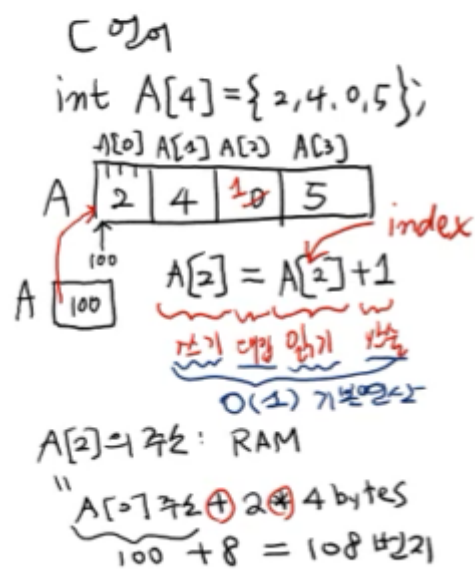 C 언어
int A[4]={2,4,0,5};
A[0] A[1] A[2] A[3]
A 2 4 0 1 5
index
100
A[2] = A[2]+1
A 100
쓰기 대입 읽기 산술
O(1) 기본연산
A[2]의 주소: RAM
" A[0] 주소 + 2 * 4 bytes
100 + 8 = 108 번지